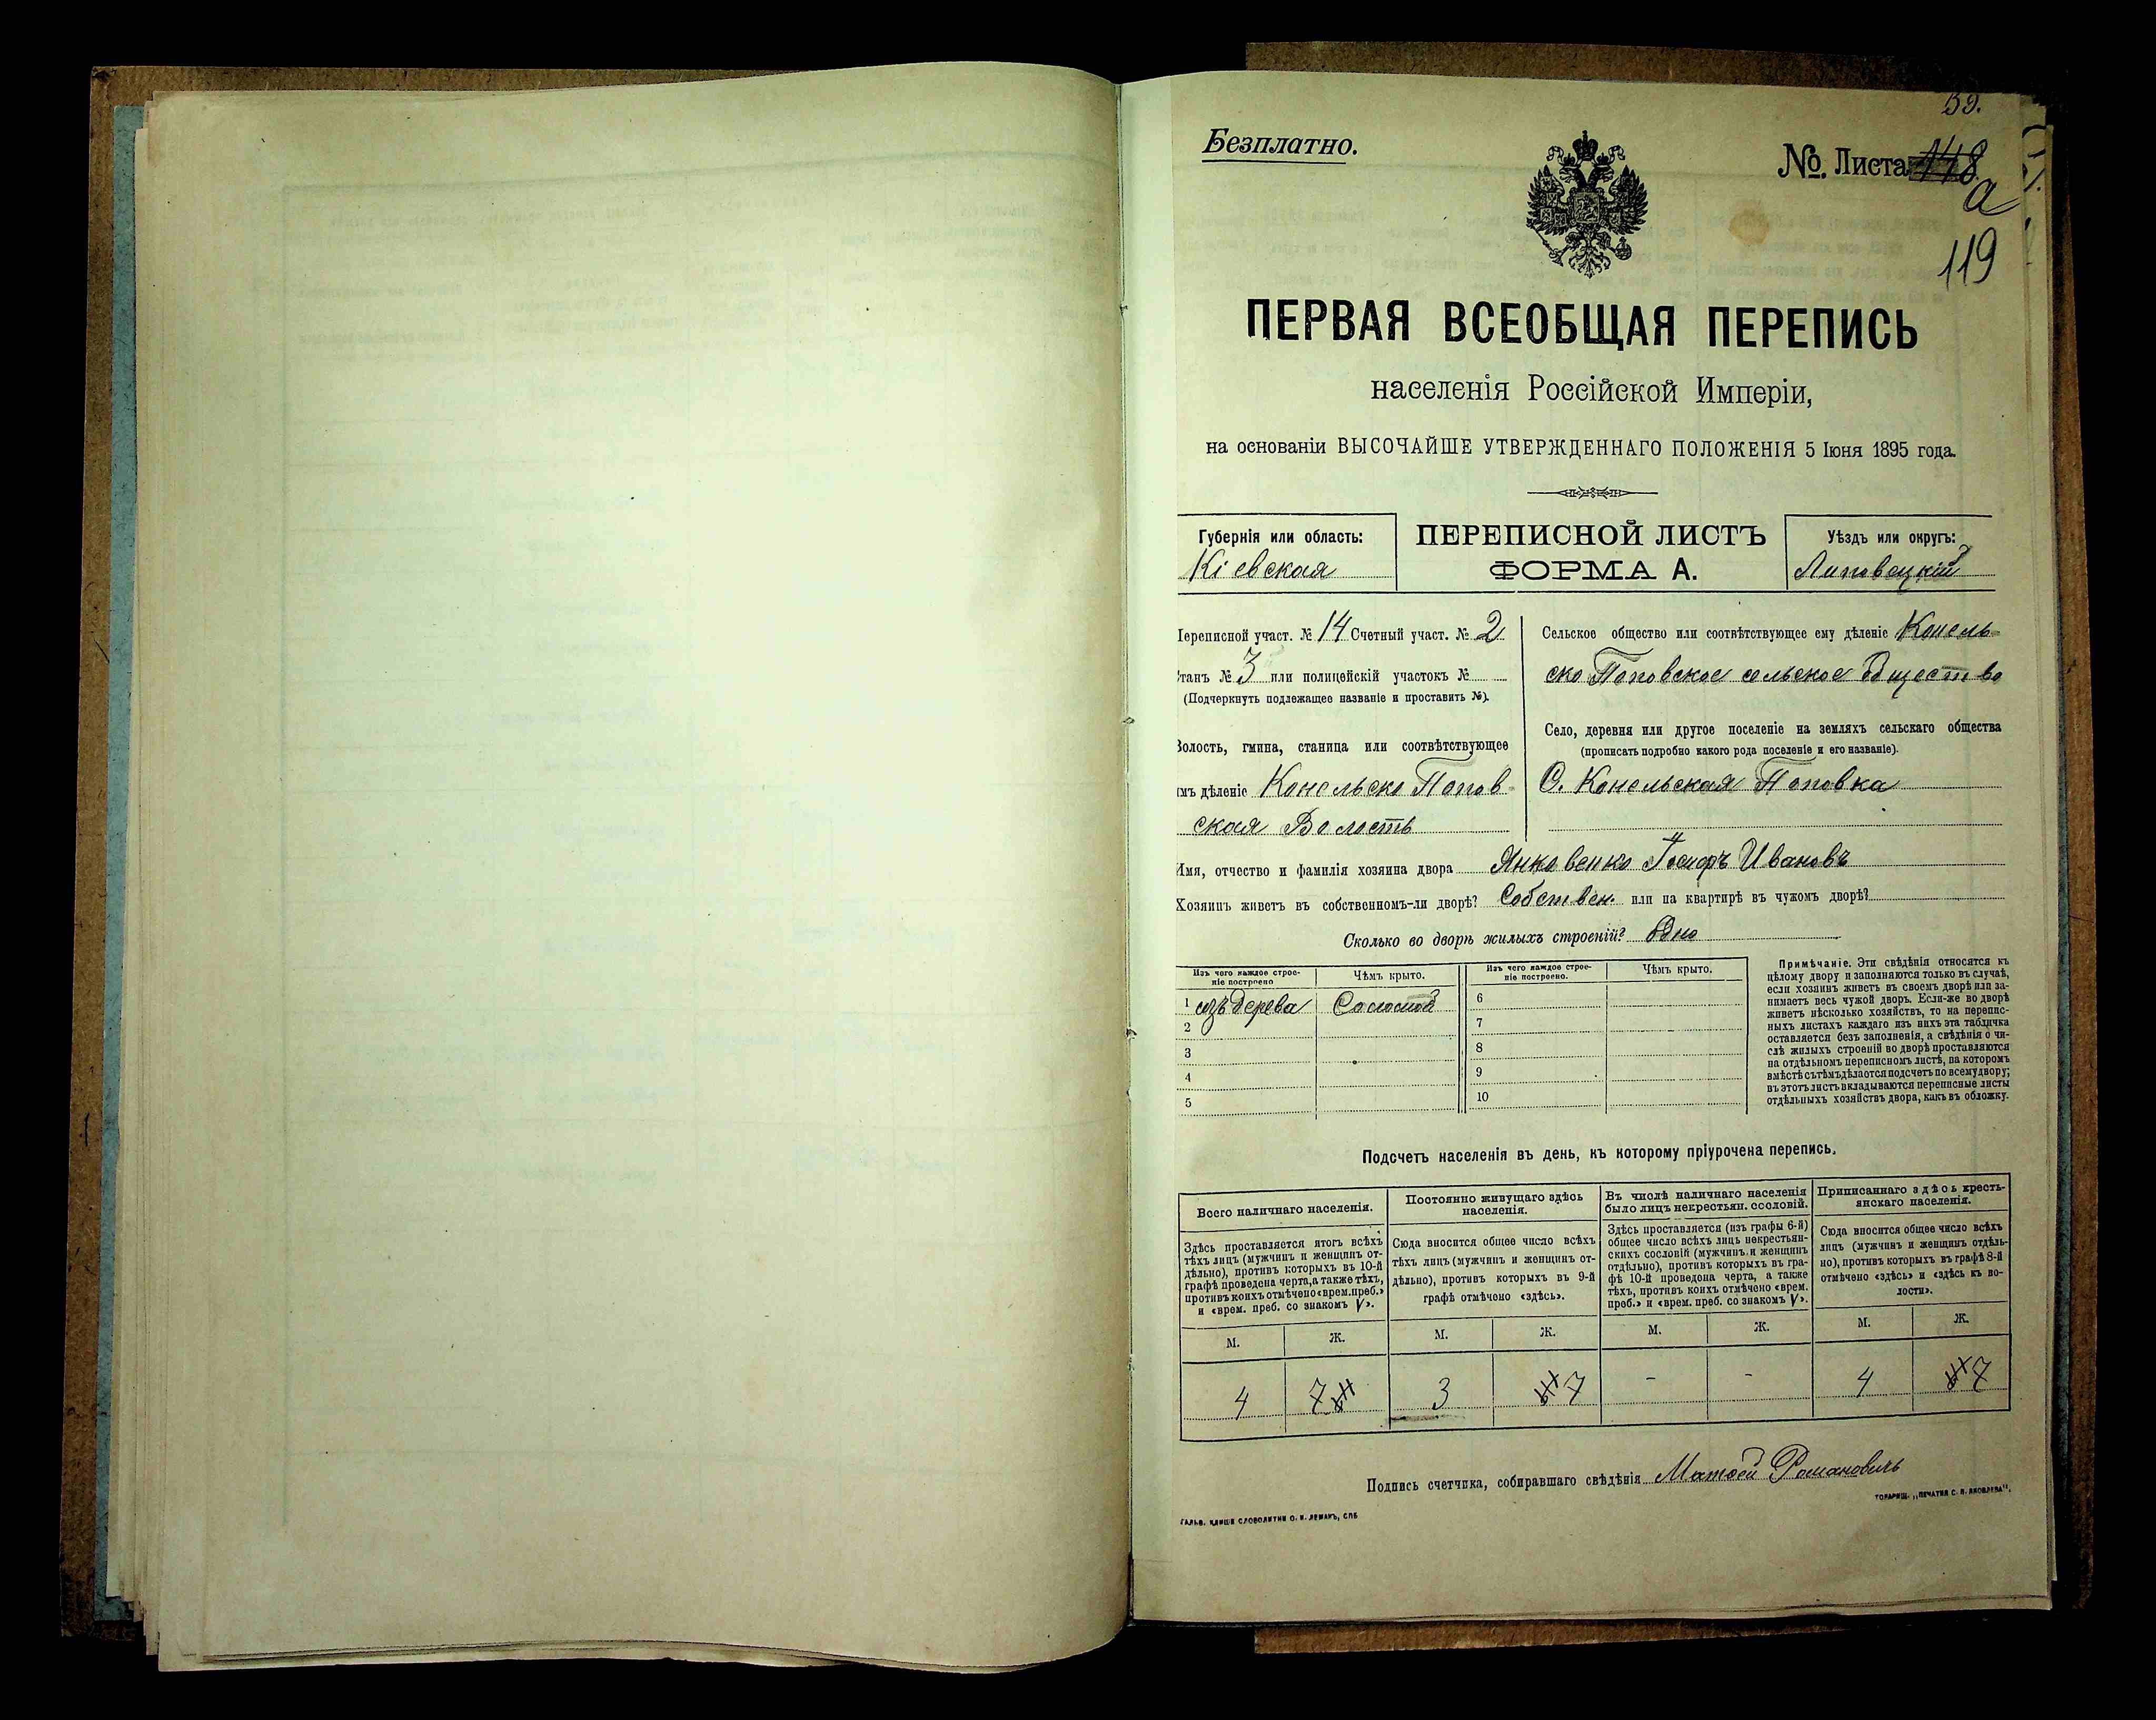 59.
Безплатно.
№. Листа 118
а
119
ПЕРВАЯ ВСЕОБЩАЯ ПЕРЕПИСЬ
населенія Россійской Имперіи,
на основаніи ВЫСОЧАЙШЕ УТВЕРЖДЕННАГО ПОЛОЖЕНІЯ 5 Іюня 1895 года.
Губернія или область:
Кіевская
ПЕРЕПИСНОЙ ЛИСТЪ
ФОРМА А.
Уѣздъ или округъ:
Липовецкій
Переписной участ. № 14 Счетный участ. № 2
Станъ № 3 или полицейскій участокъ №
(Подчеркнуть подлежащее названіе и проставить №).
Волость, гмина, станица или соотвѣтствующее
имъ дѣленіе Конельско Попов-
ская Волость
Сельское общество или соотвѣтствующее ему дѣленіе Конель-
ско Поповское сельское общество
Село, деревня или другое поселеніе на земляхъ сельскаго общества
(прописать подробно какого рода поселеніе и его названіе).
С. Конельская Поповка
Имя, отчество и фамилія хозяина двора Янковенко Іосифъ Ивановъ
Хозяинъ живетъ въ собственномъ-ли дворѣ? Собствен. или на квартирѣ въ чужомъ дворѣ?
Сколько во дворѣ жилыхъ строеній? Одно
Изъ чего каждое строе-
ніе построено
Чѣмъ крыто.
1 изъ дерева Соломой
2
3
4
5
Изъ чего каждое строе-
ніе построено.
Чѣмъ крыто.
6
7
8
9
10
Примѣчаніе. Эти свѣдѣнія относятся къ
цѣлому двору и заполняются только въ случаѣ,
если хозяинъ живетъ въ своемъ дворѣ или за-
нимаетъ весь чужой дворъ. Если-же во дворѣ
живетъ нѣсколько хозяйствъ, то на перепис-
ныхъ листахъ каждаго изъ нихъ эта табличка
оставляется безъ заполненія, а свѣдѣнія о чи-
слѣ жилыхъ строеній во дворѣ проставляются
на отдѣльномъ переписномъ листѣ, на которомъ
вмѣстѣ съ тѣмъ дѣлается подсчетъ по всему двору;
въ этотъ листъ вкладываются переписные листы
отдѣльныхъ хозяйствъ двора, какъ въ обложку.
Подсчетъ населенія въ день, къ которому пріурочена перепись.
Всего наличнаго населенія.
Здѣсь проставляется итогъ всѣхъ
тѣхъ лицъ (мужчинъ и женщинъ от-
дѣльно), противъ которыхъ въ 10-й
графѣ проведена черта, а также тѣхъ,
противъ коихъ отмѣчено «врем. преб.»
и «врем. преб. со знакомъ V».
М. Ж.
4 7
Постоянно живущаго здѣсь
населенія.
Сюда вносится общее число всѣхъ
тѣхъ лицъ (мужчинъ и женщинъ от-
дѣльно), противъ которыхъ въ 9-й
графѣ отмѣчено «здѣсь».
М. Ж.
3 7
Въ числѣ наличнаго населенія
было лицъ некрестьян. сословій.
Здѣсь проставляется (изъ графы 6-й)
общее число всѣхъ лицъ некрестьян-
скихъ сословій (мужчинъ и женщинъ
отдѣльно), противъ которыхъ въ гра-
фѣ 10-й проведена черта, а также
тѣхъ, противъ коихъ отмѣчено «врем.
преб.» и «врем. преб. со знакомъ V».
М. Ж.
- -
Приписаннаго здѣсь кресть-
янскаго населенія.
Сюда вносится общее число всѣхъ
лицъ (мужчинъ и женщинъ отдѣль-
но), противъ которыхъ въ графѣ 8-й
отмѣчено «здѣсь» и «здѣсь къ во-
лости».
М. Ж.
4 7
Подпись счетчика, собиравшаго свѣдѣнія Матвей Романовичъ
ТОВАРИЩ. „ПЕЧАТНЯ С. П. ЯКОВЛЕВА".
ГАЛЬВ. КЛИШЕ СЛОВОЛИТНИ О. И. ЛЕМАНЪ, СПБ